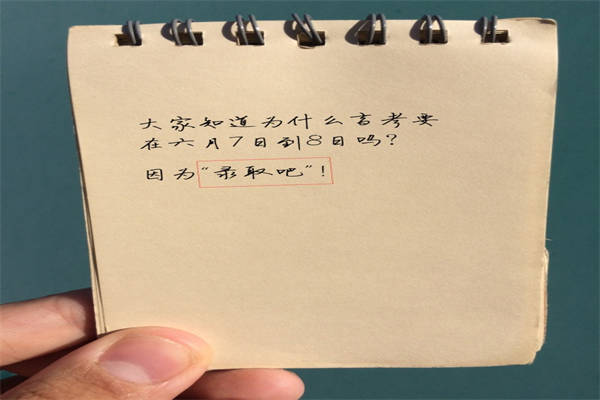 大家知道为什么高考要
在六月7日到8日吗？
因为“录取吧”！